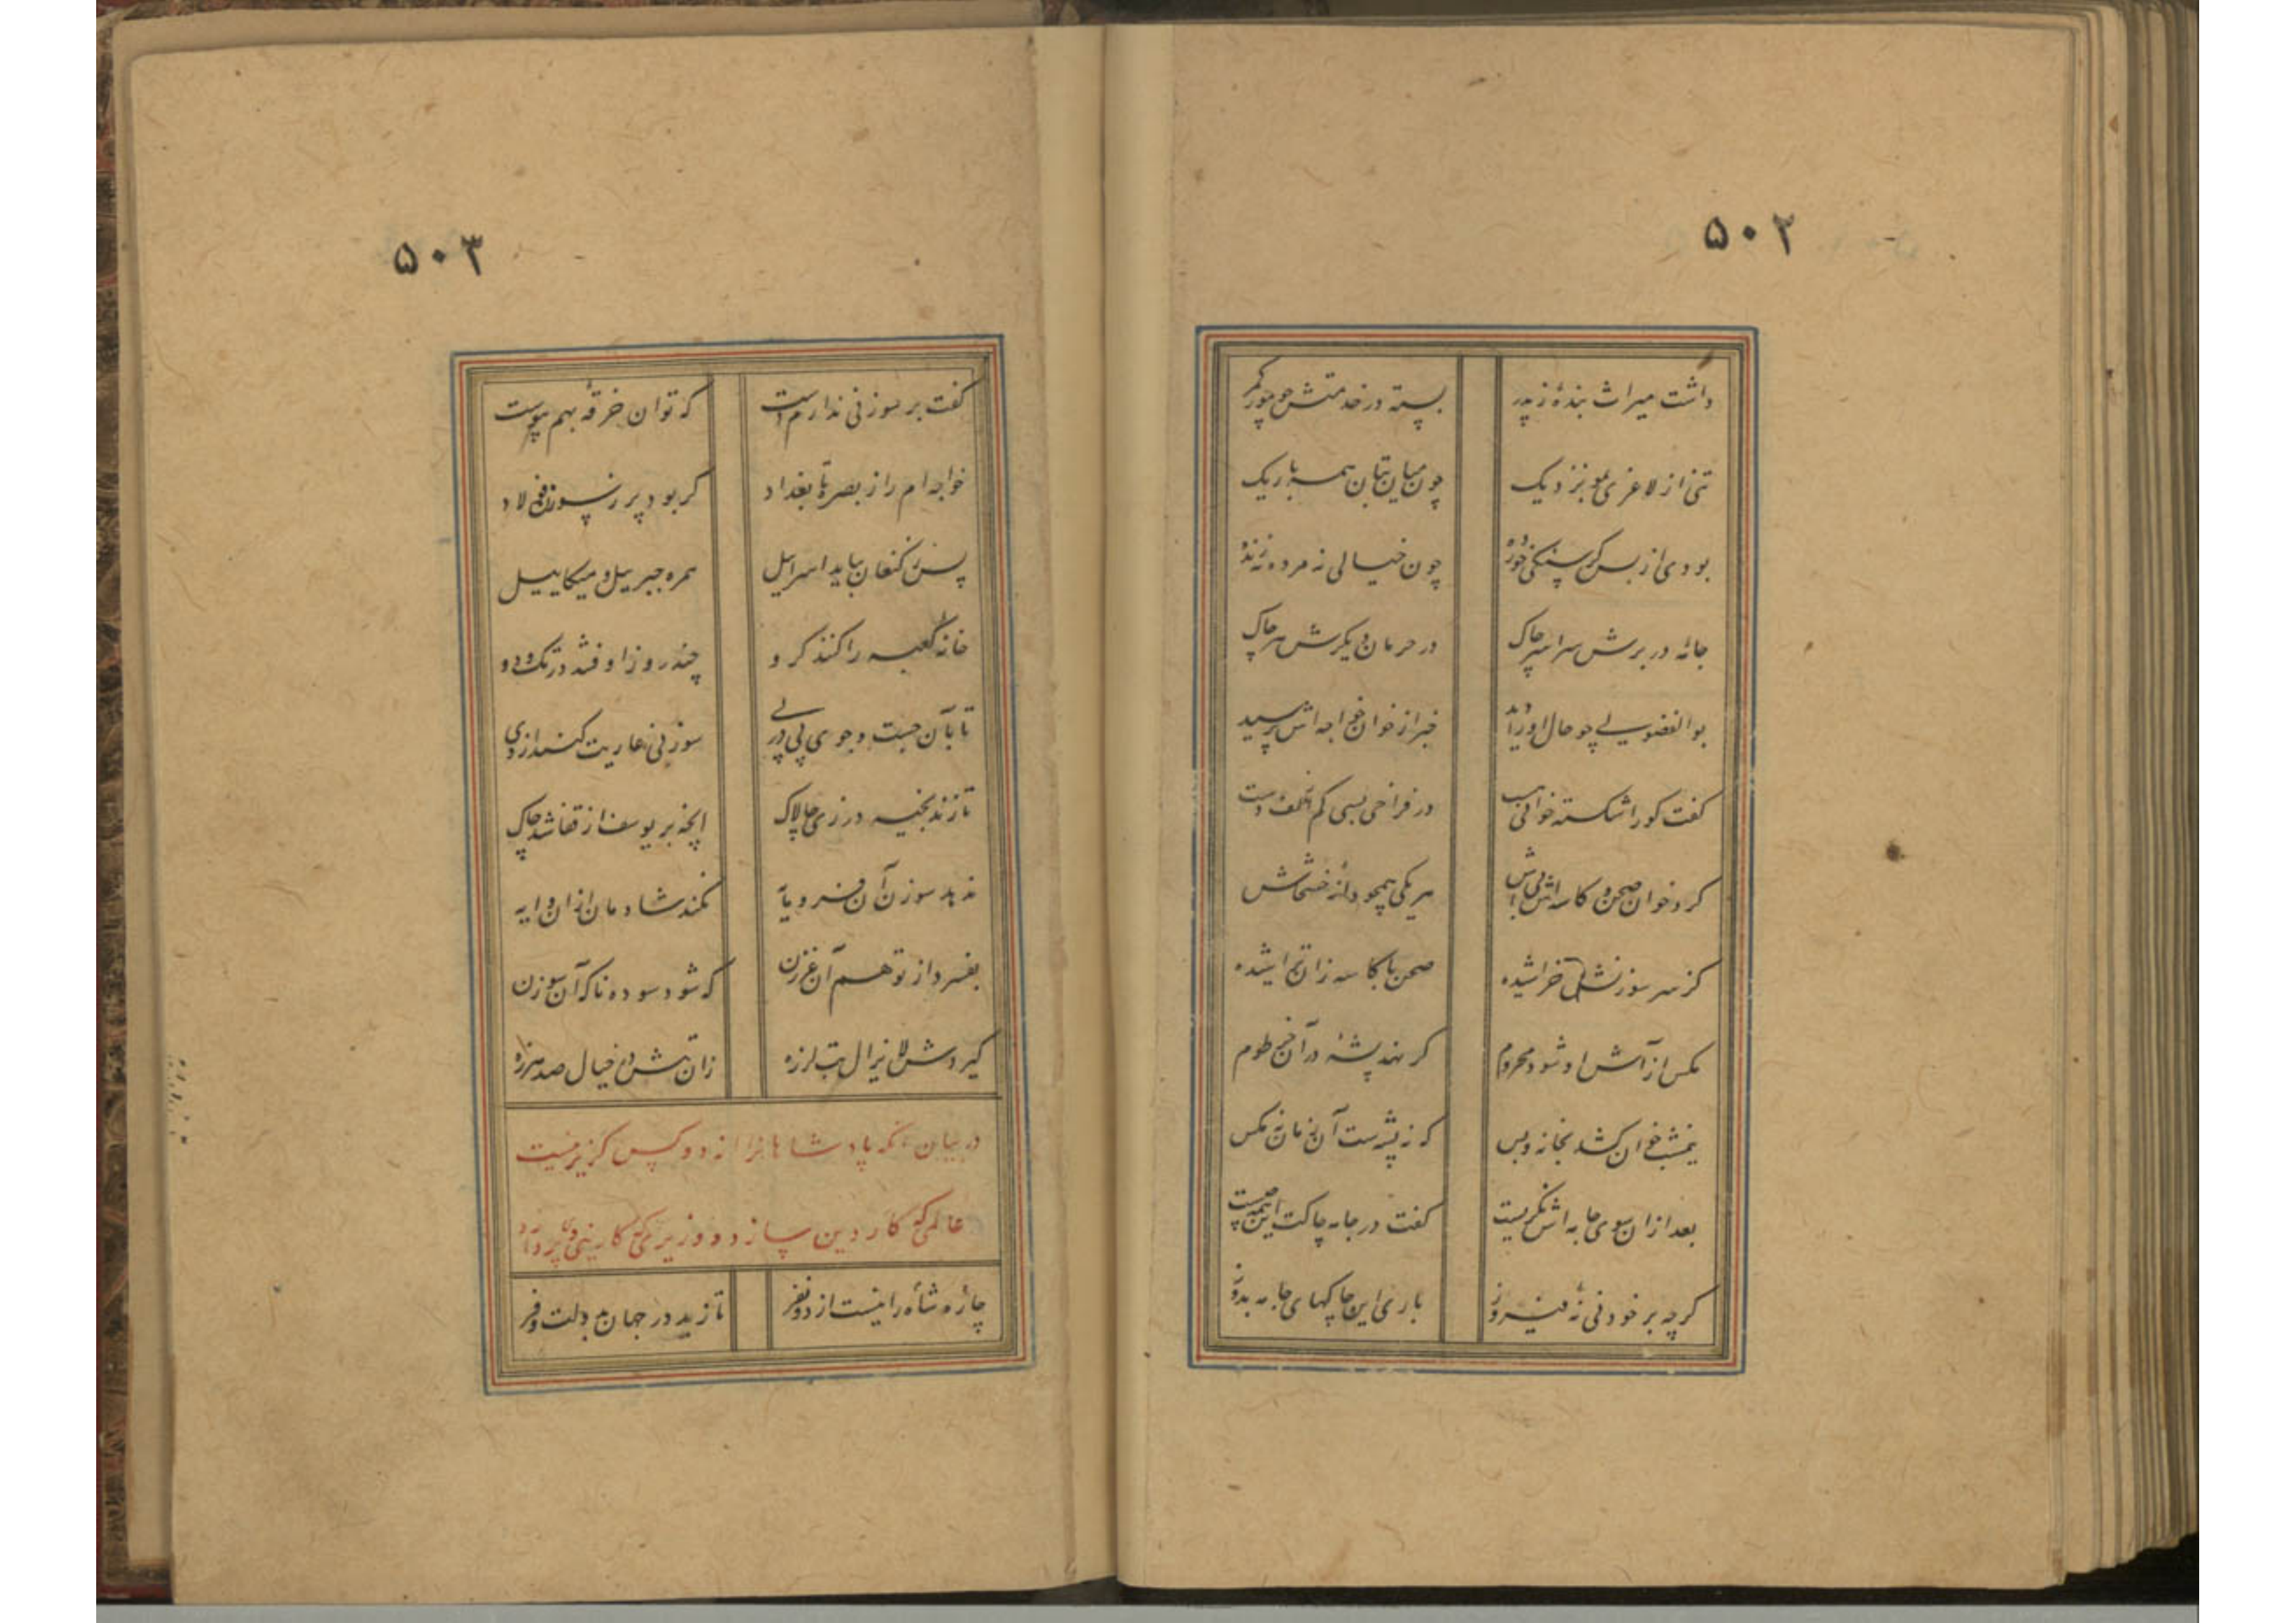 ۵۰۲
داشت میراث بندهٔ ز پدر بسته در خدمتش چو مور کمر
تنی از لاغری بمو نزدیک چون میان بتان همه باریک
بودی از بس گرسنگی خورده چون خیالی نه مرده نه زنده
جامهٔ در برش سراسر چاک در حرمان دیگرش هر چاک
بوالفضولی چو حال او را دید خبر از خوان خواجه‌اش پرسید
گفت کو را شکسته خوانی هست در فراخی بسی کم از کف دست
گرد خوان صحن و کاسه اش باش هر یکی همچو دانهٔ خشخاش
کز سر سوزنش خراشیده صحن با کاسه زان تراشیده
مکس از آش او شود محروم کر نهد پشهٔ در آن خرطوم
نیمشب خوان کشد بخانه و بس که نه پشه ست آن زمان نه مکس
بعد از ان سوی جامه اش نگریست گفت در جامه چاکت این همه چیست
کرچه بر خود نی نهٔ فیروز باری این چاکهای جامه بدوز
۵۰۳
گفت بر سوزنی ندارم دست که توان خرقه بهم پیوست
خواجه ام را ز بصره تا بغداد گر بود پر ز سوزن فولاد
پس ز کنعان بیاید اسرائیل همره جبرییل و میکاییل
خانهٔ کعبه را کنند کرو چند روز اوفتند در تک و دو
تا بآن جست و جوی پی در پی سوزنی عاریت کنند از وی
تا زند بخیه درزی چالاک آنچه بر یوسف از قفا شد چاک
ندهد سوزن آن فرومایه نکند شادمان از ان دایه
بفسرد از توهم آن غرزن که شود سوده ناکه آن سوزن
گیردش لایزال تب لرزه زان تبش در خیال صد هرزه
در بیان آنکه پادشاهانرا از دو کس گزیر نیست
عالمی که کار دین سازد و وزیری که کار دنیی پردازد
چاره شاه را نیست از دو نفر تا زید در جهان بدولت و فر